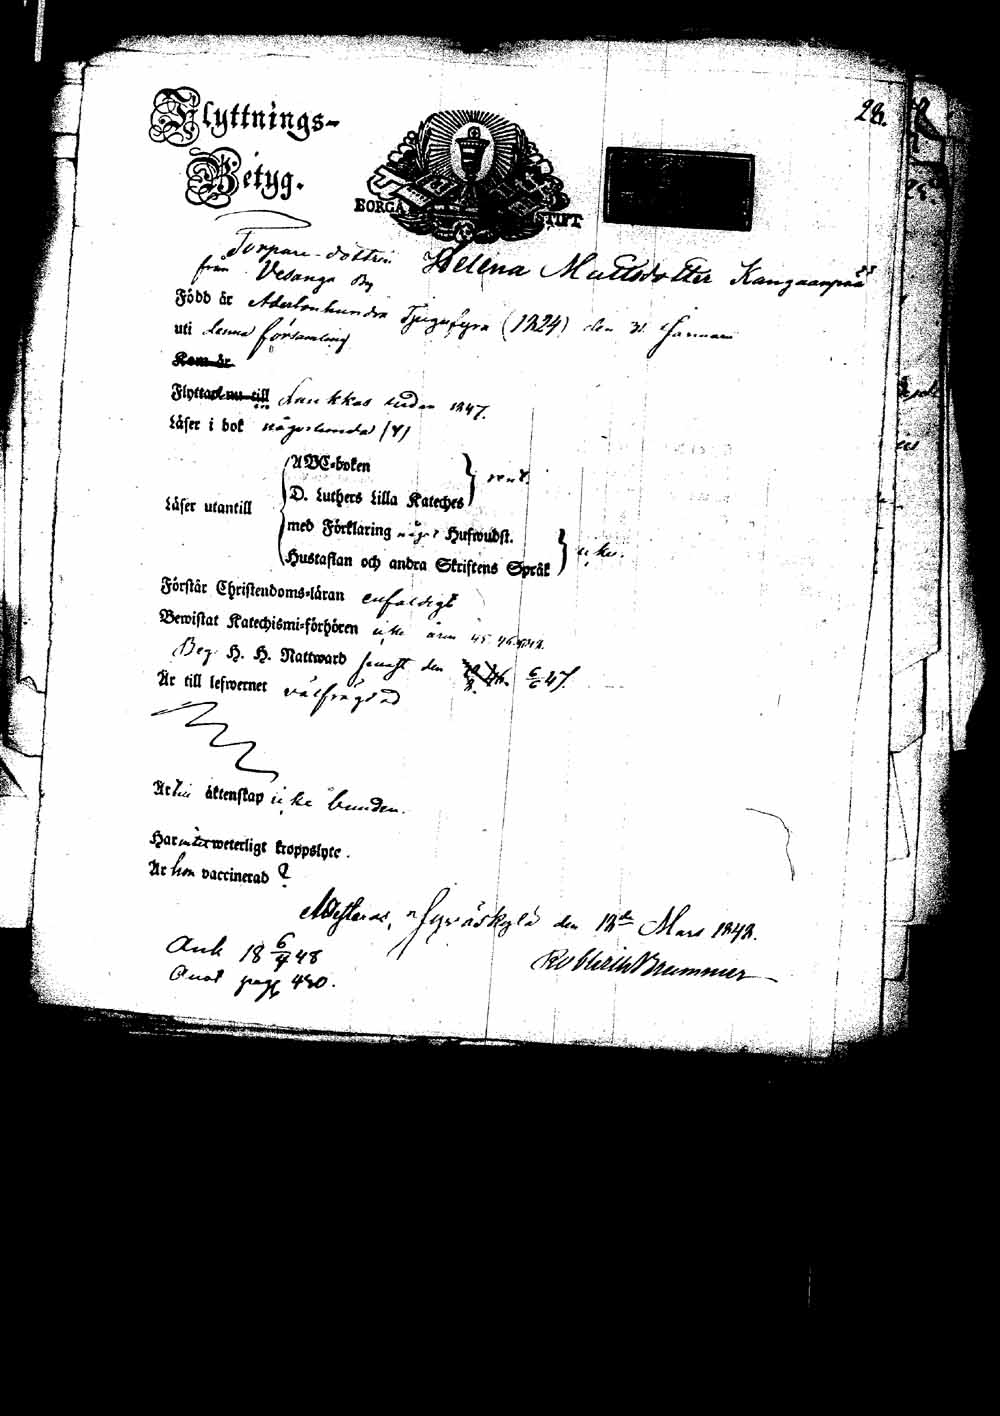 28.
Flyttnings-
Betyg.
BORGÅ STIFT
Torpare-dottren Helena Mattsdotter Kangaanpää
från Vesanga By
Född år Adertonhundra Tjugufyra (1824) den 31 Januari
uti denna församling
Kom år
Flyttade nu till Laukkas sedan 1847.
Läser i bok någorlunda (4)
ABC-boken
D. Luthers Lilla Kateches
Läser utantill
med Förklaring något Hufwudst.
Hustaflan och andra Skriftens Språk icke.
Förstår Christendoms-läran enfaldigt
Bewistat Katechismi-förhören icke åren 45 46
Beg. H. H. Nattward senast den 6/6 47.
Är till lefwernet välfrägdad
Är till äktenskap icke bunden.
Har weterligt kroppslyte.
Är hon vaccinerad ?
Jyväskylä den 18de Mars 1848.
Ank 18 6/4 48
Rob Brummer
pag 480.